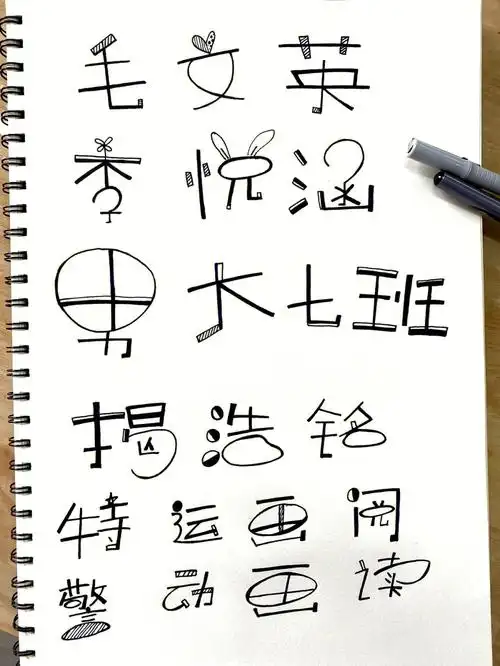 毛文英
李悦涵
男 大七班
揭浩铭
特警
运动
画画
阅读